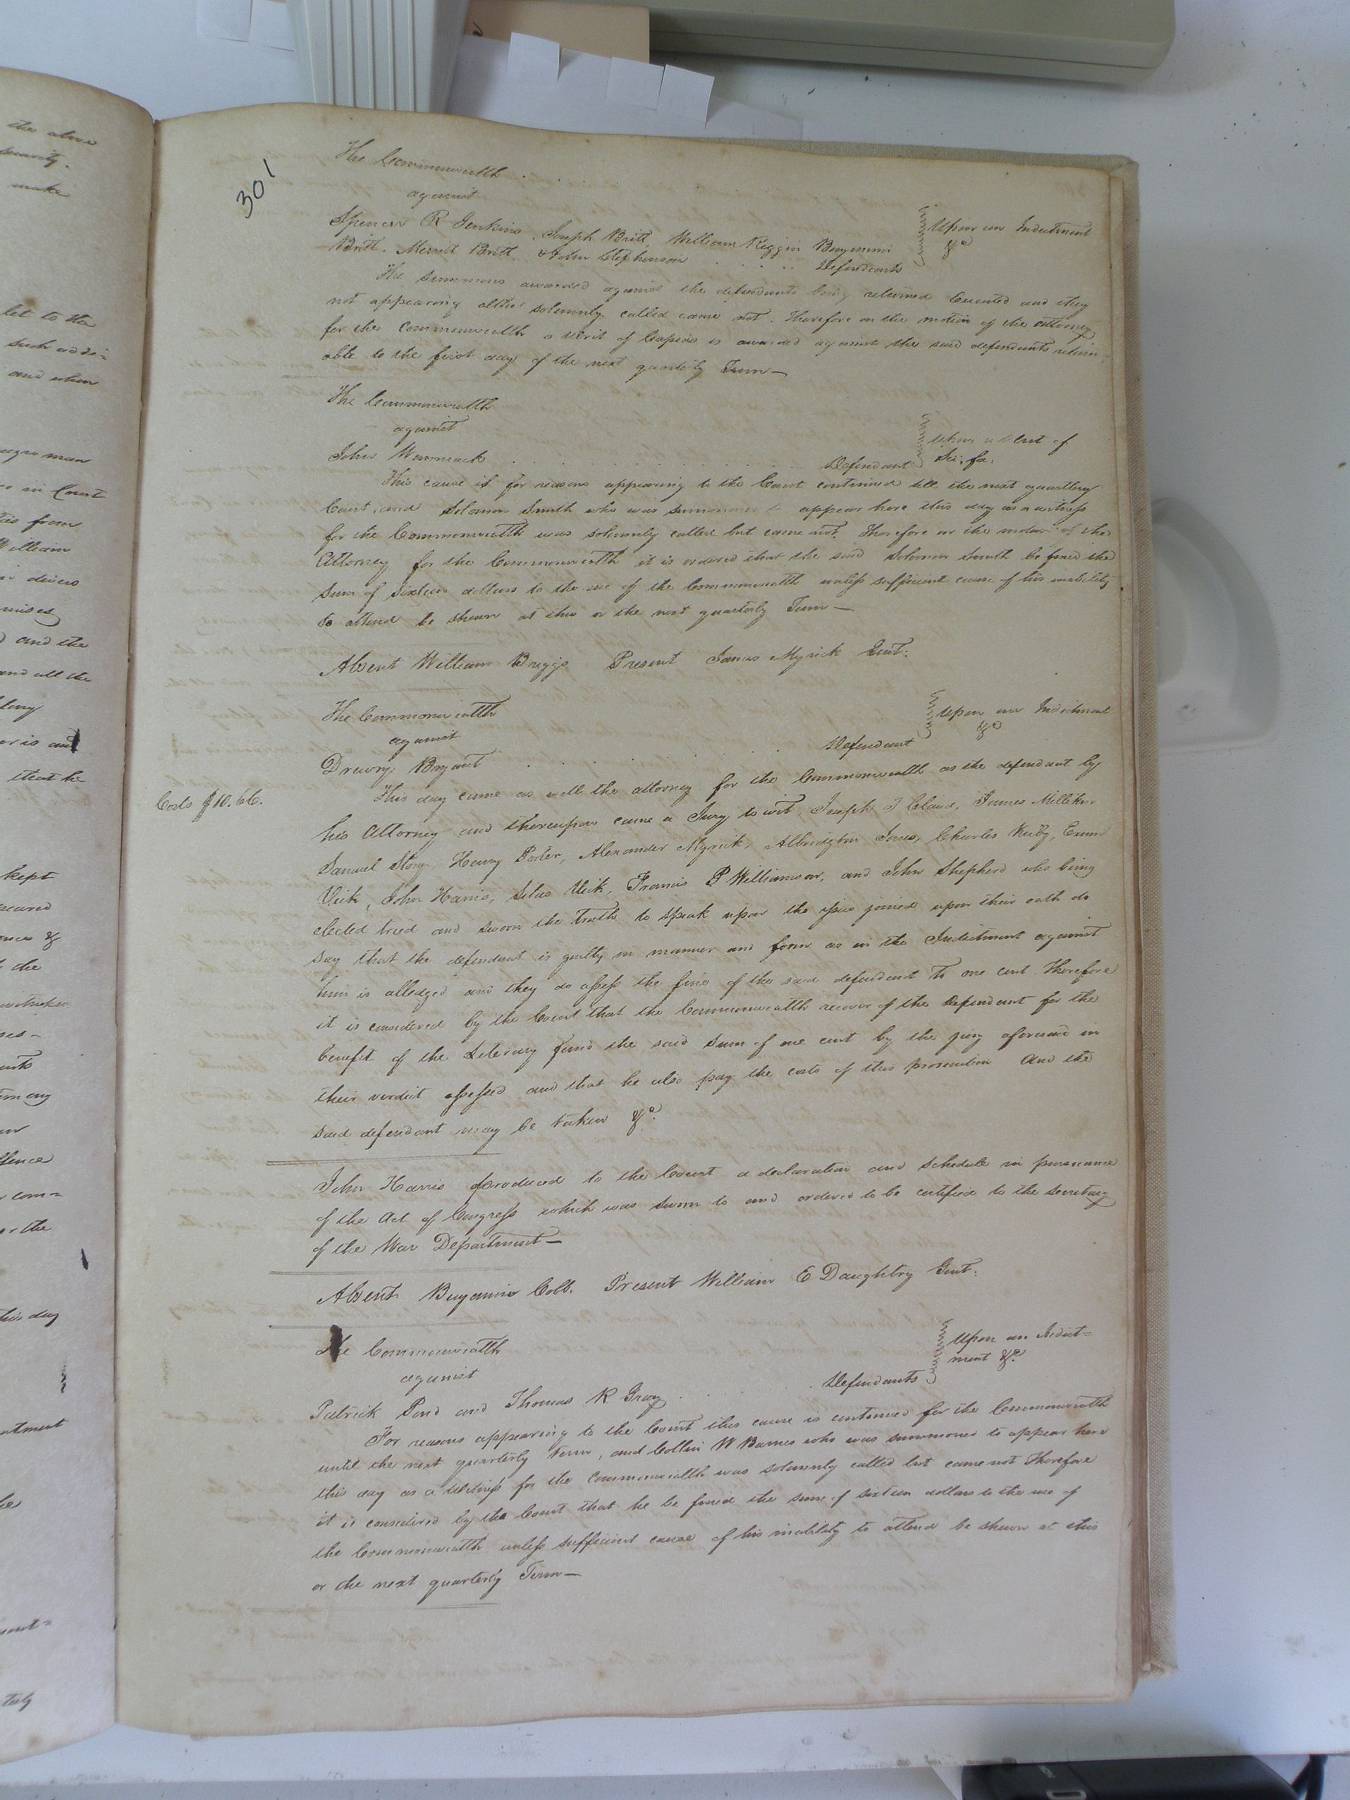 the above
security.
make
let to the
such addi=
and when
negro man
in Court
from
William
divers
and the
and all the
or is and
that he
kept
& the
among
com=
or the
this day
301
The Commonwealth
against
Spencer R Jenkins, Joseph Britt, William Riggin Benjamin
Britt, Merrit Britt, & John Stephenson Defendants
Upon an Indictment
&c
The Summons awarded against the defendants being returned Executed and they
not appearing altho' solemnly called came not. Therefore on the motion of the attorney
for the Commonwealth a writ of Capias is awarded against the said defendants return-
able to the first day of the next quarterly Term—
The Commonwealth
against
John Wommack Defendant
Upon a Writ of
Sci. fa.
This cause is for reasons appearing to the Court continued till the next quarterly
Court, and Solomon Smith who was summoned to appear here this day as a witness
for the Commonwealth was solemnly called but came not, Therefore on the motion of the
Attorney for the Commonwealth it is ordered that the said Solomon Smith be fined the
Sum of Sixteen dollars to the use of the Commonwealth unless sufficient cause of his inability
to attend be shewn at this or the next quarterly Term—
Absent William Briggs Present James Myrick Gent.
The Commonwealth
against
Drewry Bryant Defendant
Upon an Indictment
&c
Costs $10.66.
This day came as well the attorney for the Commonwealth as the defendant by
his Attorney and thereupon came a Jury to wit, Joseph T Claud, James Milliken
Samuel Story Henry Porter, Alexander Myrick, Albridgton Jones, Charles Kirby,
Vick, John Harris, Silas Vick, Francis P Williamson, and John Shepherd who being
elected tried and sworn the truth to speak upon the issue joined upon their oath do
say that the defendant is guilty in manner and form as in the Indictment against
him is alledged and they do assess the fine of the said defendant to one cent Therefore
it is considered by the Court that the Commonwealth recover of the Defendant for the
benefit of the Literary fund the said sum of one cent by the jury aforesaid in
their verdict assessed and that he also pay the costs of this prosecution And the
said defendant may be taken &c.
John Harris produced to the Court a declaration and schedule in pursuance
of the Act of Congress which was sworn to and ordered to be certified to the Secretary
of the War Department—
Absent Benjamin Cobb. Present William E Daughtry Gent.
The Commonwealth
against
Patrick Pond and Thomas R Gray Defendants
Upon an Indict=
ment &c.
For reasons appearing to the Court this cause is continued for the Commonwealth
until the next quarterly Term, and Collin W Barnes who was summoned to appear here
this day as a Witness for the Commonwealth was solemnly called but came not Therefore
it is considered by the Court that he be fined the sum of sixteen dollars to the use of
the Commonwealth unless sufficient cause of his inability to attend be shewn at this
or the next quarterly Term—